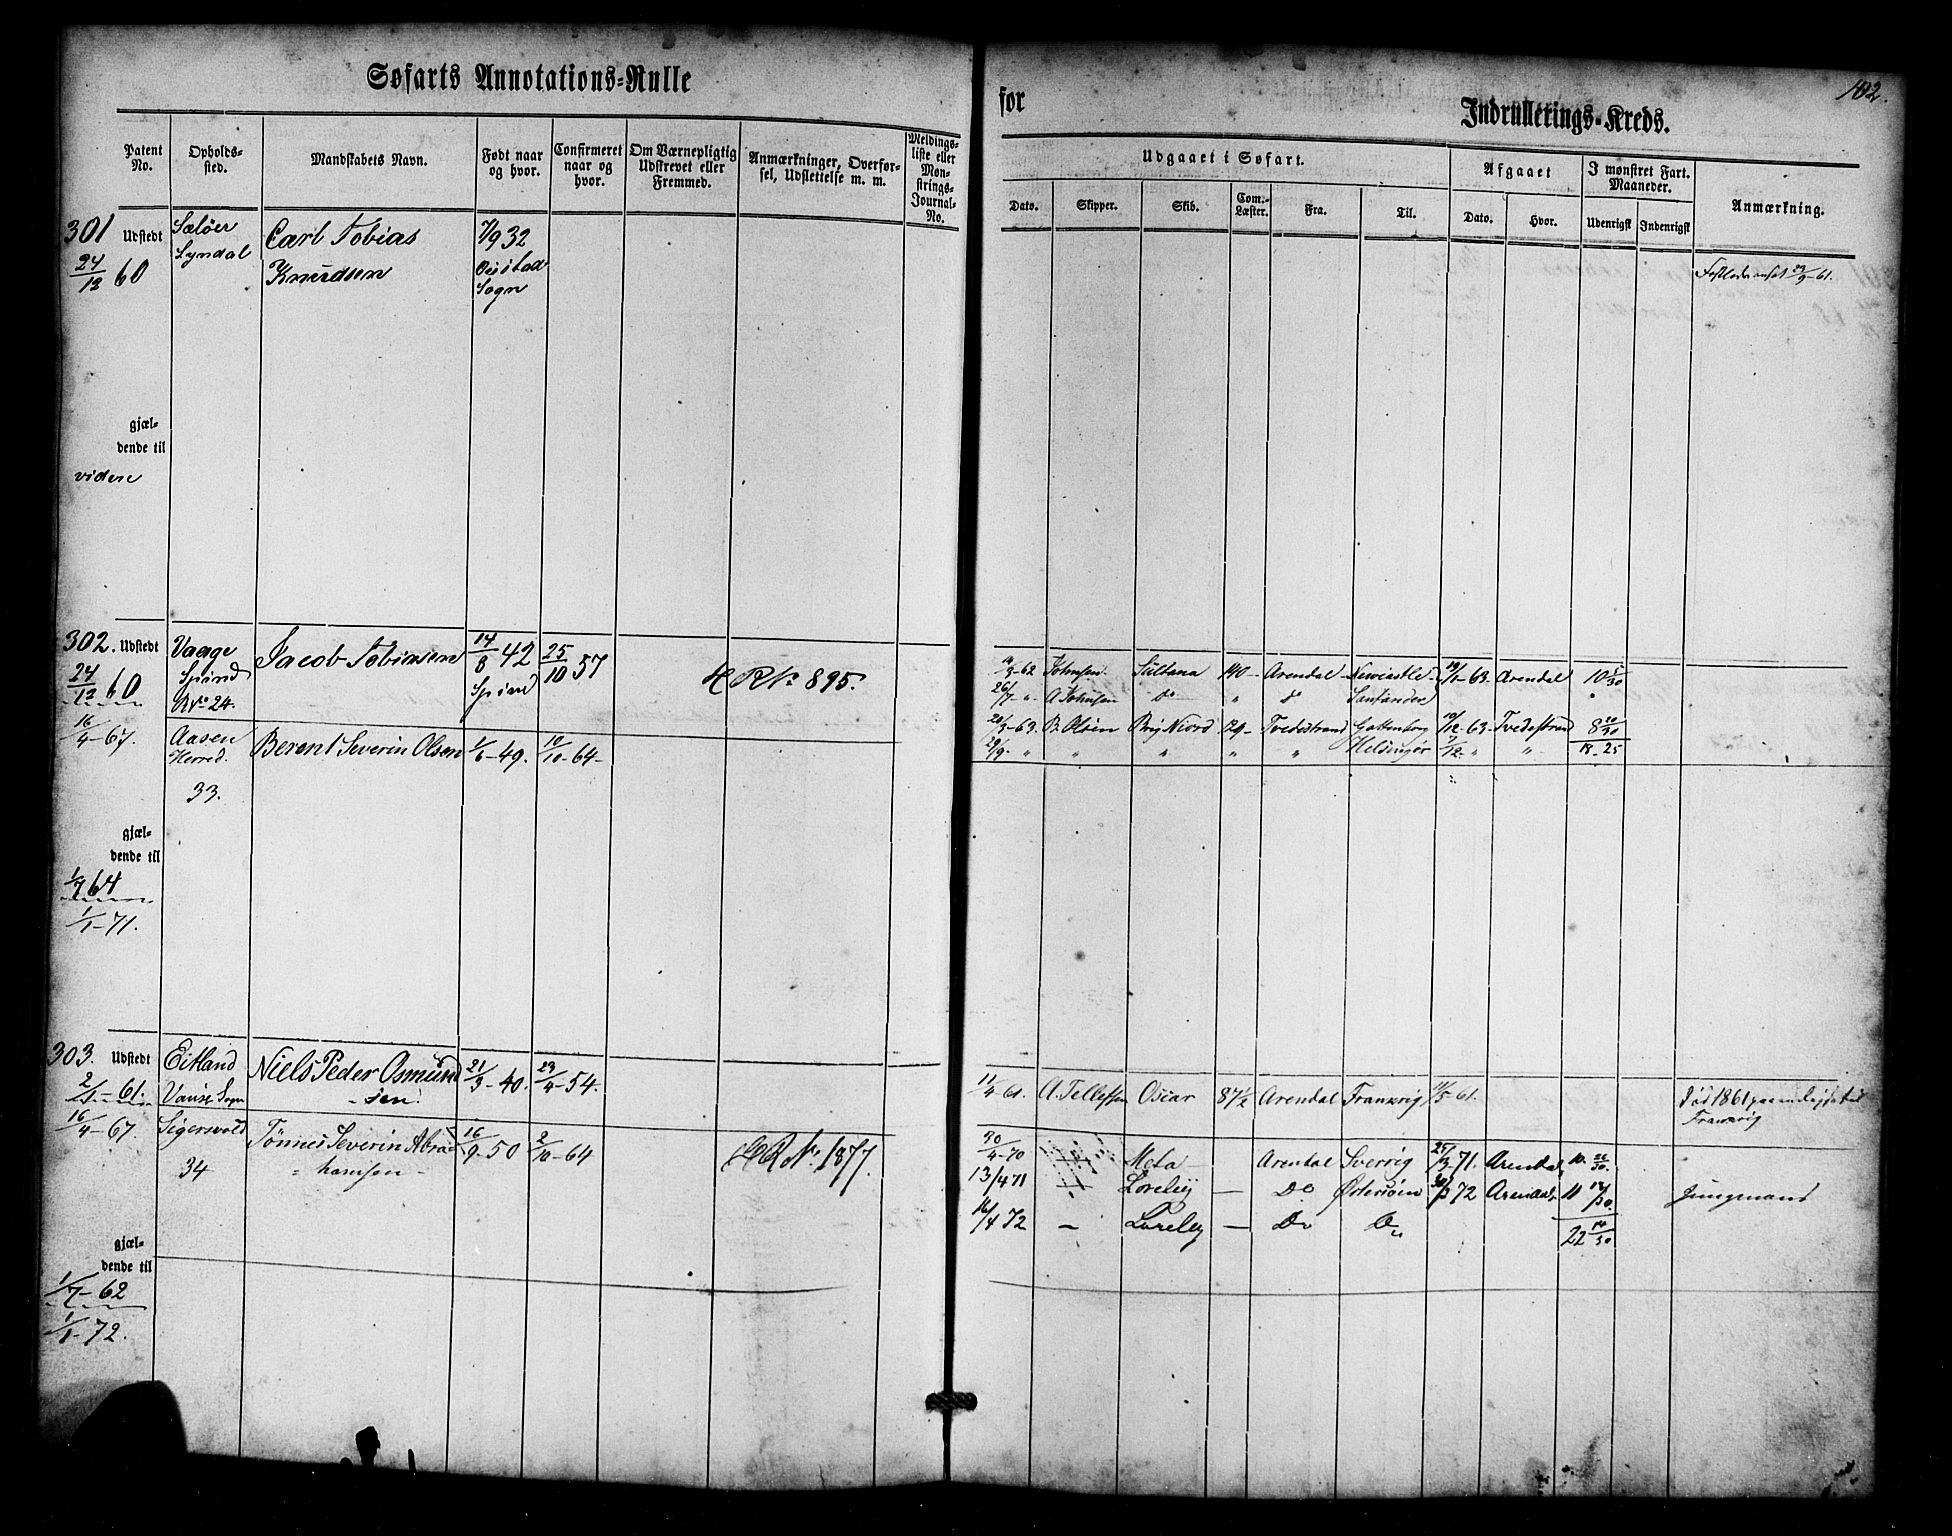 Søfarts Annotations-Rulle
for
Indrullerings-Kreds.
102.
Patent No.
Opholds-sted.
Mandskabets Navn.
Født naar og hvor.
Confirmeret naar og hvor.
Om Værnepligtig Udskrevet eller Fremmed.
Anmærkninger, Overførsel, Udslettelse m. m.
Meldings-liste eller Mønstrings-Journal-No.
Udgaaet i Søfart.
Afgaaet
I mønstret Fart. Maaneder.
Anmærkning.
Dato.
Skipper.
Skib.
Com.-Læster.
Fra.
Til.
Dato.
Hvor.
Udenrigsk
Indenrigsk
301 Udstedt
24/12 60
Sæløer
Lyndal
Carl Tobias
Knudsen
7/9 32
Sogn
gjæl-
dende til
videre
302. Udstedt
24/12 60
Vaage
Spind
No 24.
Jacob Tobiasen
14/8 42
Spind
25/10 57
H R No 895.
-62 Johnsen Sultana 140 - Arendal Newcastle -63 Arendal 10 5/30
26/7 - " A Johnsen Do " Do Santander
-63 B. Olsen Brig Niord 129 - Tvedestrand Gottenborg -63 Tvedestrand 8 20/30
29/9 " " " " " Helsingør " " 18-25
16/4-67.
Aasen
Herred.
33.
Berent Severin Olsen
1/6-49.
10/10-64-
gjæl-
dende til
1/7 64
1/1-71.
303. Udstedt
2/1-61.
Eitland
Vanse Sogn
Niels Peder Osmund
-sen.
21/3-40.
23/4-54.
11/4 61. A. Tellefsen Oscar 87½ Arendal Frankrig 11/5 61.
Død 1861
Frankrig
16/4-67.
Sigersvold
34
Tönnes Severin Abra-
hamsen
16/9-50
2/10-64
H R No. 1877.
30/4-70 Meta - Arendal Sverrig 71. Arendal 10. 22/30.
13/4 71 Loreley - Do Østersøen 72 Arendal, 11
Jungmand
16/4 72 - Loreley - Do Do
22 14/30
gjæl-
dende til
1/7-62
1/1-72.